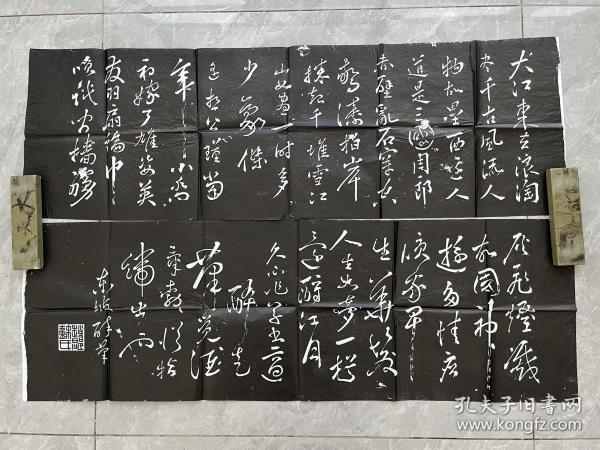 大江東去浪淘
尽千古風流人
物故壘西邊人
道是三國周郎
赤壁亂石穿空
驚濤拍岸
捲起千堆雪江
山如畫一時多
少豪傑
遙想公瑾當
年小喬
初嫁了雄姿英
发羽扇綸巾
談笑间檣艣
灰飛煙滅
故國神
遊多情应
笑我早
生華髮
人生如夢一樽
還酹江月
久不作草書適
醉走
筆覺酒
氣勃勃從指
端出也
東坡醉筆
孔夫子旧书网
www.kongfz.com